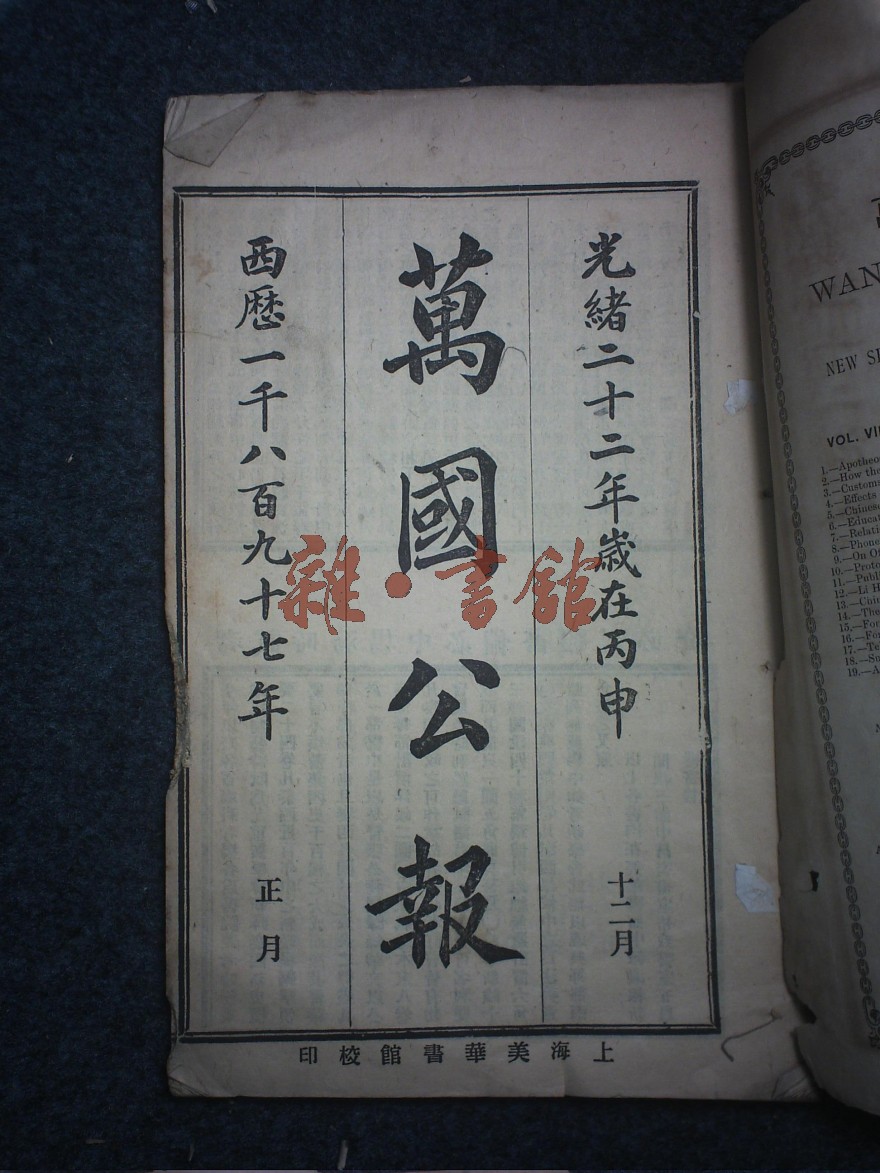 光緒二十二年歲在丙申
十二月
萬國公報
西歷一千八百九十七年
正月
上海美華書館校印
雜·書館
WAN
NEW
VOL. VII
1.—Apotheo
2.—How the
3.—Customs
4.—Effects
5.—Chinese
6.—Educat
7.—Relati
8.—Phone
9.—On Of
10.—Proto
11.—Publi
12.—Li H
13.—
14.—The
15.—For
16.—For
17.—Tel
18.—Su
19.—A